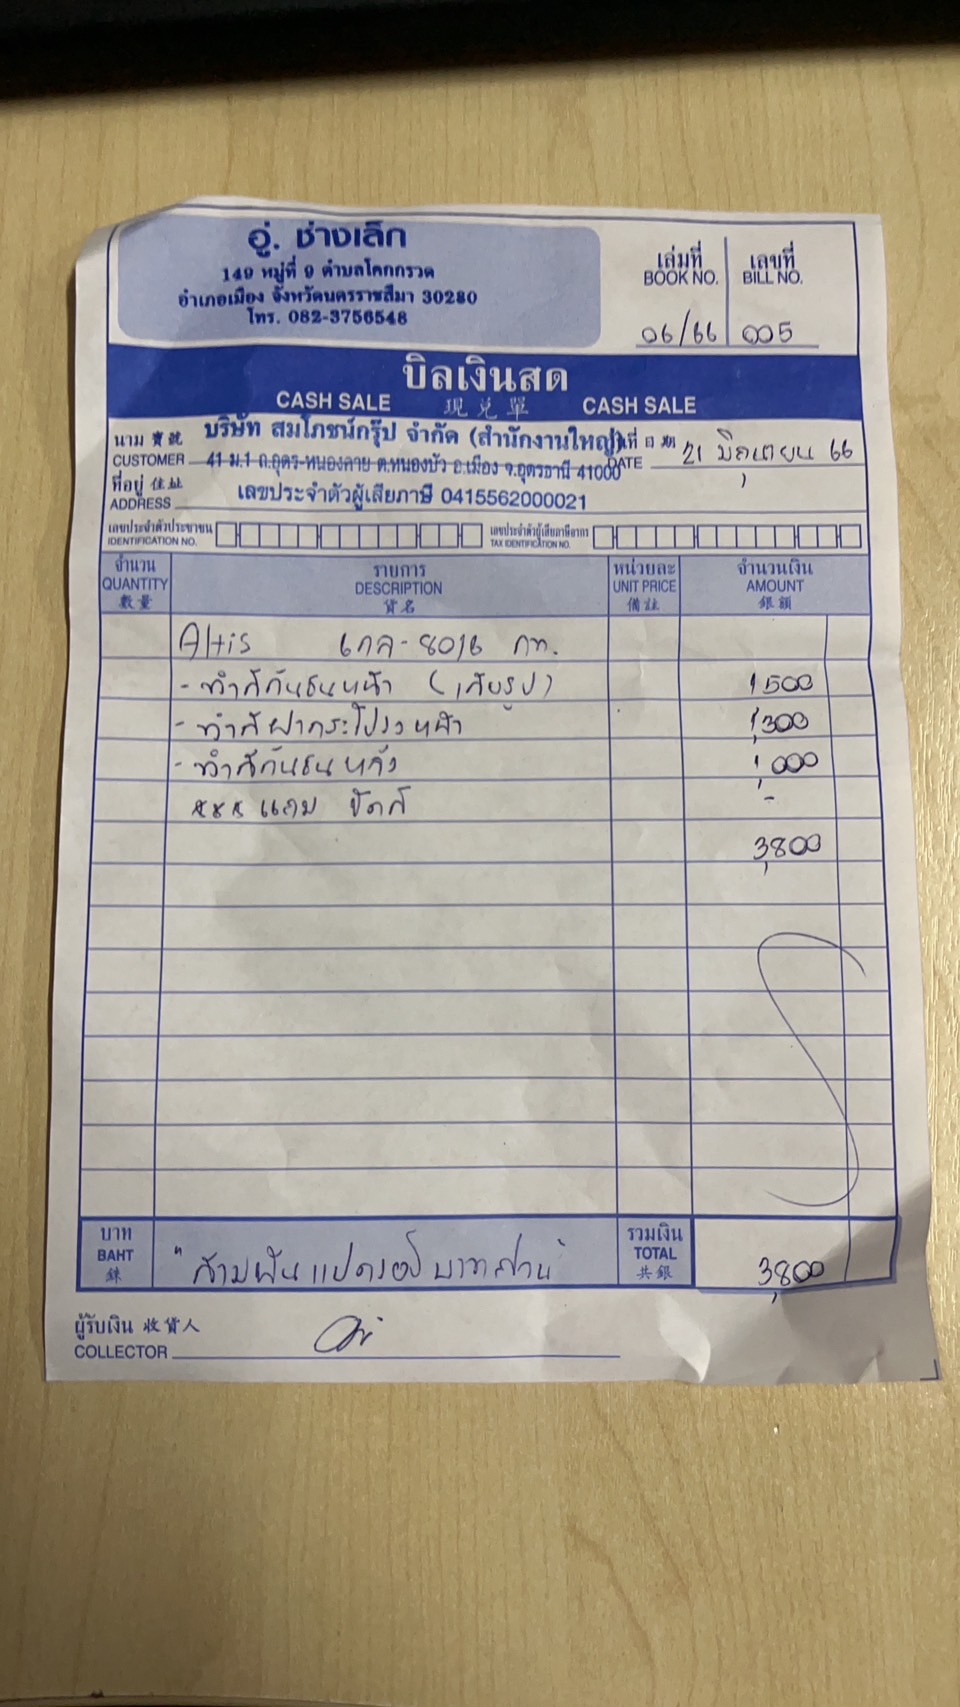 อู่. ช่างเล็ก
149 หมู่ที่ 9 ตำบลโคกกรวด
อำเภอเมือง จังหวัดนครราชสีมา 30280
โทร. 082-3756548
เล่มที่ เลขที่
BOOK NO. BILL NO.
06/66 005
บิลเงินสด
CASH SALE 現兑單 CASH SALE
นาม 賣號 บริษัท สมโภชน์กรุ๊ป จำกัด (สำนักงานใหญ่) วันที่ 日期
CUSTOMER 41 ม.1 ถ.อุดร-หนองคาย ต.หนองบัว อ.เมือง จ.อุดรธานี 41000 DATE 21 มิถุนายน 66
ที่อยู่ 住址 เลขประจำตัวผู้เสียภาษี 0415562000021
ADDRESS
เลขประจำตัวประชาชน เลขประจำตัวผู้เสียภาษีอากร
IDENTIFICATION NO. TAX IDENTIFICATION NO.
จำนวน รายการ หน่วยละ จำนวนเงิน
QUANTITY DESCRIPTION UNIT PRICE AMOUNT
數量 貨名 備註 銀額
Altis 6กล-8016 กท.
- ทำสีกันชนหน้า (เสียรูป) 1,500
- ทำสีฝากระโปรงหน้า 1,300
- ทำสีกันชนหลัง 1,000
*** แถม ขัดสี -
3,800
บาท รวมเงิน
BAHT "สามพันแปดร้อยบาทถ้วน" TOTAL 3,800
銖 共銀
ผู้รับเงิน 收貨人
COLLECTOR